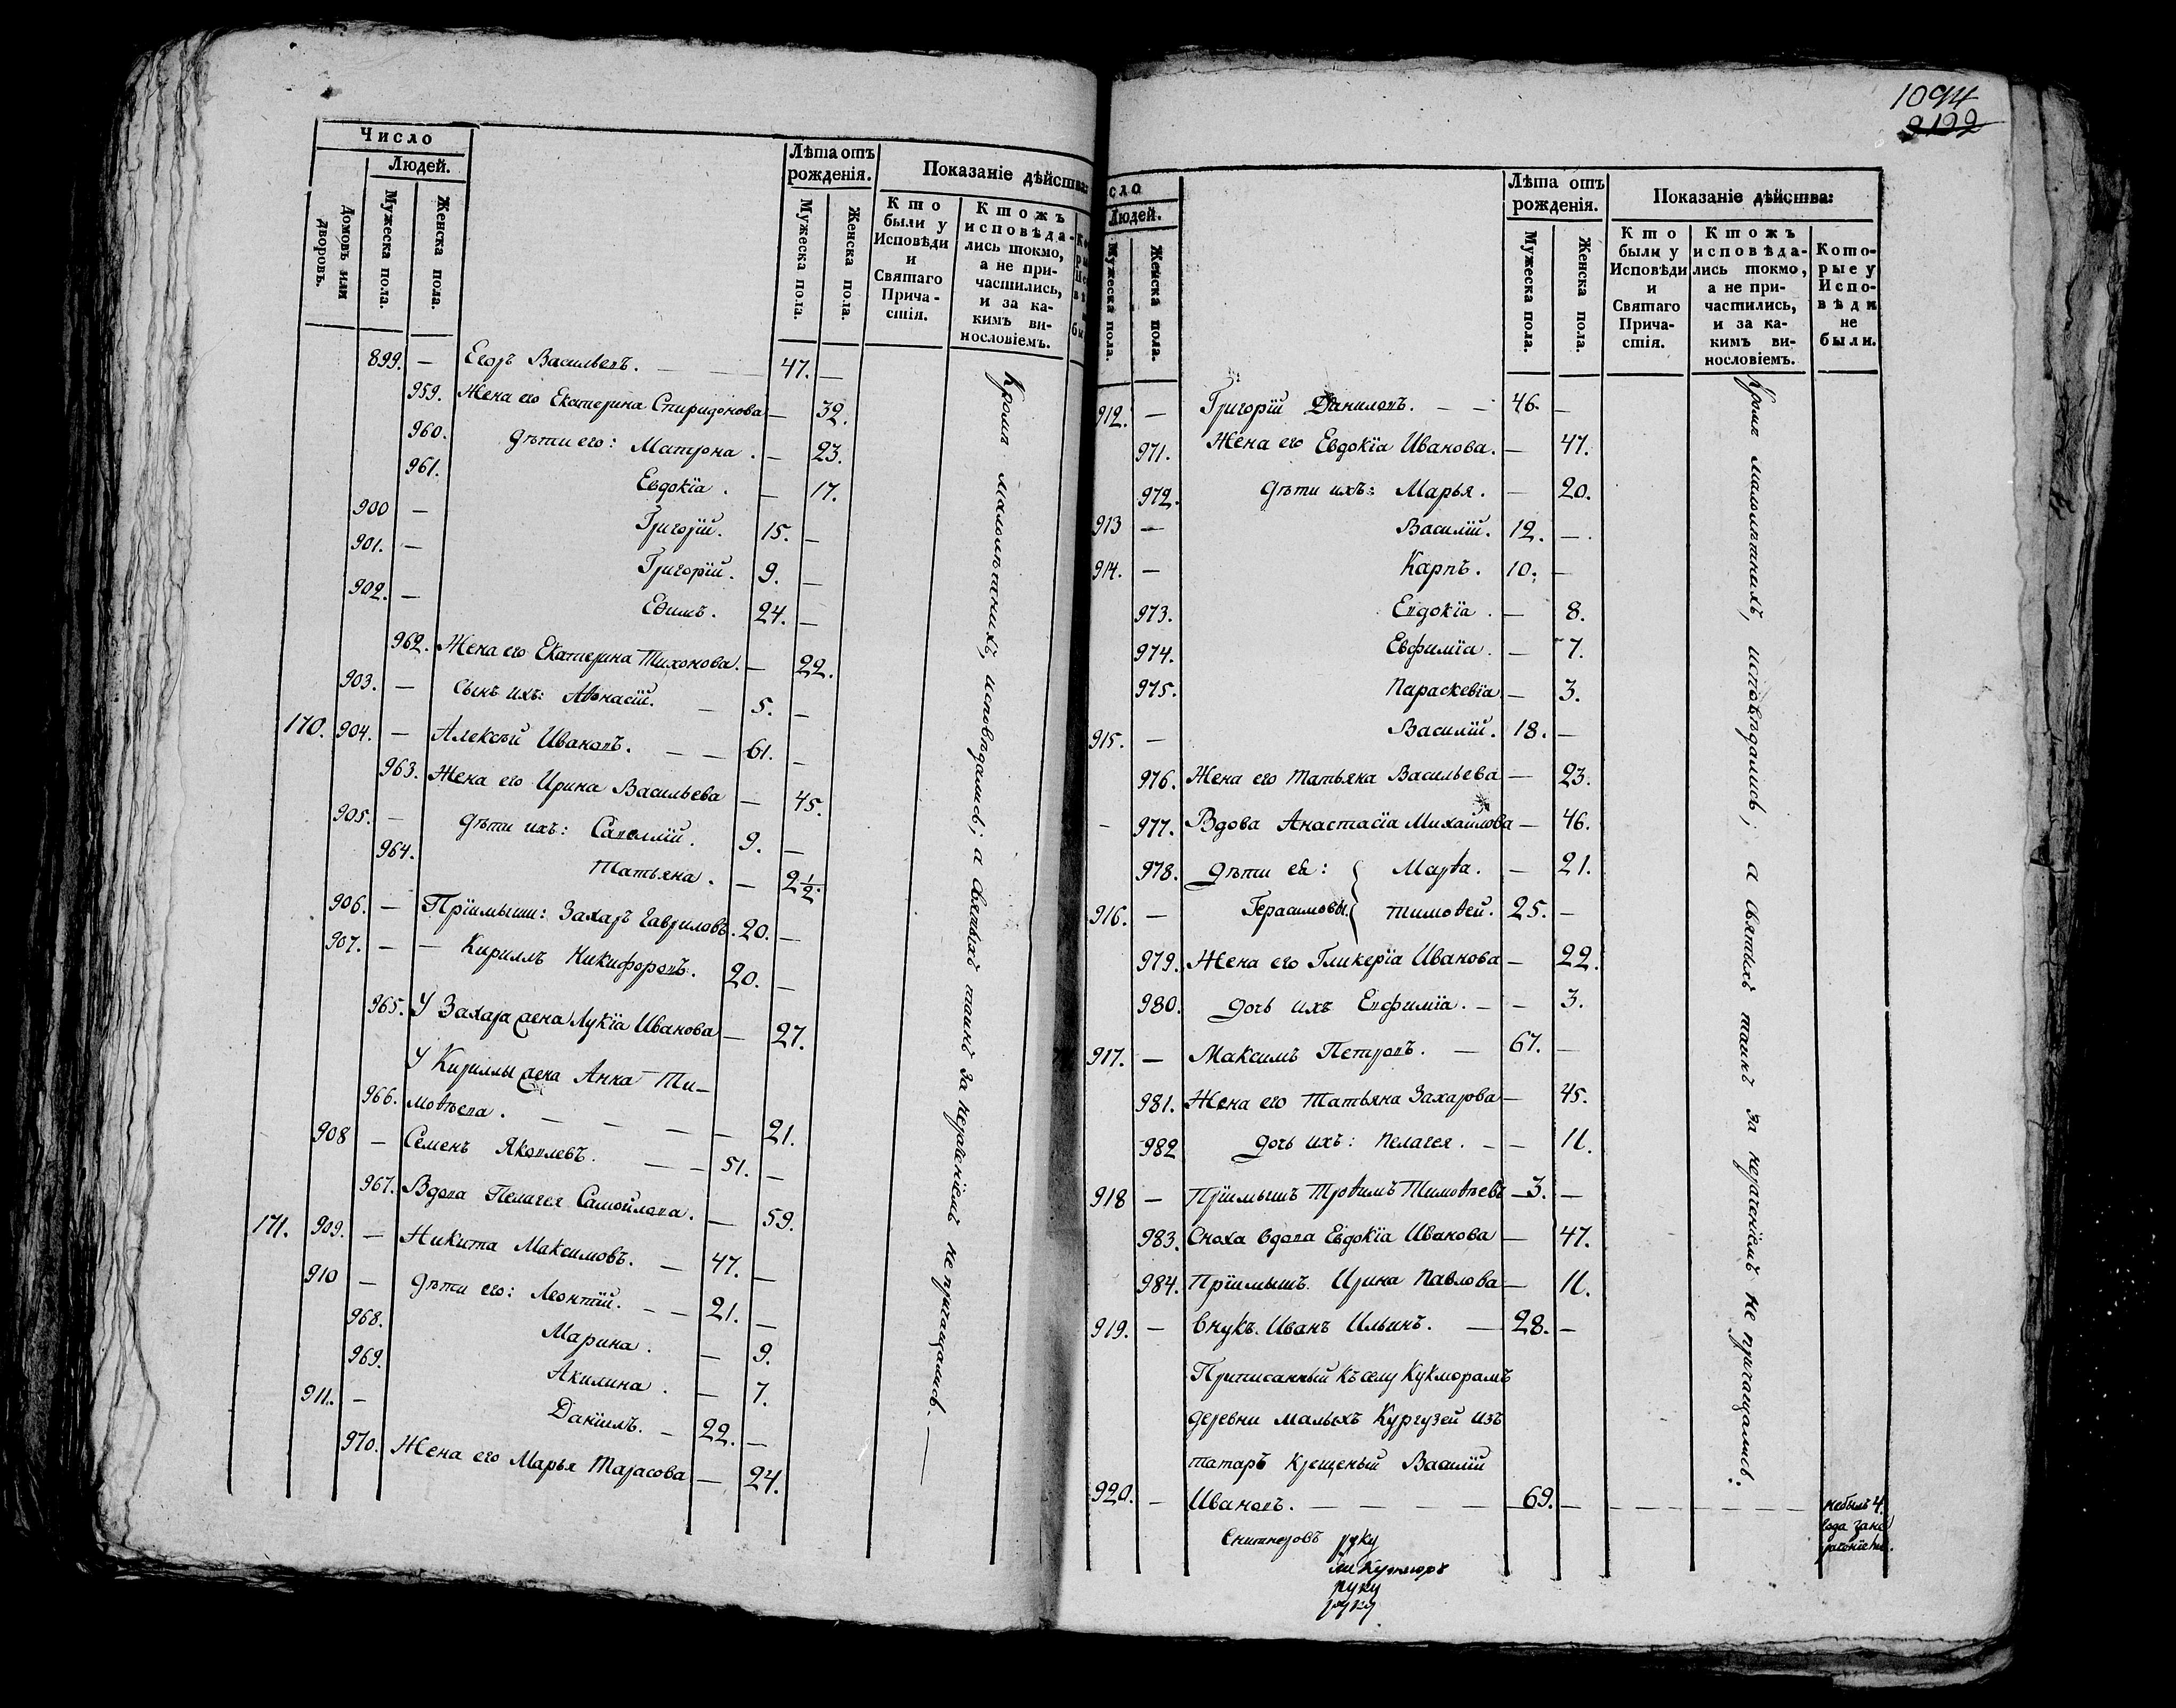 Число
Людей.
Домовъ или дворовъ.
Мужеска пола.
Женска пола.
Лѣта отъ рожденія.
Мужеска пола.
Женска пола.
Показаніе дѣйства:
Кто были у Исповѣди и Святаго Прича-
стія.
Ктожъ исповѣда-
лись токмо, а не при-
частились, и за ка-
кимъ ви-
нословіемъ.
899. — Егоръ Васильевъ. — — 47. —
959. Жена его Екатерина Спиридонова — 32.
960. Дѣти его: Матрона. — 23.
961. Евдокїа. — 17.
900 — Григорїй. 15. —
901. — Григорїй. 9. —
902. — Еѳимъ. 24. —
962. Жена его Екатерина Тихонова. — 22.
903. — Сынъ ихъ: Аѳонасїй. — 5. —
170. 904. — Алексѣй Ивановъ. — — 61. —
963. Жена его Ирина Васильева — 45.
905. — Дѣти ихъ: Савелїй. 9. —
964. Татьяна. — 2 1/2.
906. — Прїимыши: Захаръ Гавриловъ. 20. —
907. — — Кириллъ Никифоровъ. 20. —
965. У Захара жена Лукїа Иванова — 27.
У Кириллы жена Анна Ти-
966. моѳѣева. — — — — 21.
908 — Семенъ Яковлевъ. — — 51. —
967. Вдова Пелагея Самойлова. — 59.
171. 909. — Никита Максимовъ. — 47. —
910 — Дѣти его: Леонтїй. — — 21. —
968. Марина. — 9.
969. Акилина. — 7.
911. — Данїилъ. — 22. —
970. Жена его Марья Тарасова — 24.
Кромѣ малолѣтнихъ, исповѣдались; а Святыхъ таинъ за нераченїемъ не причащались. —
1094
сло
Людей.
Мужеска пола.
Женска пола.
Лѣта отъ рожденія.
Мужеска пола.
Женска пола.
Показаніе дѣйства:
Кто были у Исповѣди и Святаго Прича-
стія.
Ктожъ исповѣда-
лись токмо, а не при-
частились, и за ка-
кимъ ви-
нословіемъ.
Кото-
рые у Испо-
вѣди не были.
912. — Григорїй Даниловъ. — — 46. —
971. Жена его Евдокїа Иванова. — 47.
972. Дѣти ихъ: Марья. — 20.
913 — Василїй. 12. —
914. — Карпъ. 10. —
973. Евдокїа. — 8.
974. Евфимїа. — 7.
975. Параскевїа — 3.
915. — Василїй. 18. —
976. Жена его Татьяна Васильева — 23.
977. Вдова Анастасїа Михайлова — 46.
978. Дѣти ея: Марѳа. — 21.
916. — Герасимовы. Тимоѳей. 25. —
979. Жена его Гликерїа Иванова — 22.
980. Дочь ихъ Евфимїа. — — 3.
917. — Максимъ Петровъ. — 67. —
981. Жена его Татьяна Захарова — 45.
982 Дочь ихъ: Пелагея. — — 11.
918 — Прїимышъ Троѳимъ Тимоѳѣевъ — 3. —
983. Сноха вдова Евдокїа Иванова — 47.
984. Прїимышъ. Ирина Павлова — 11.
919. — Внукъ. Иванъ Ильинъ. — 28. —
Приписанный къ селу Кукморамъ
деревни Малыхъ Кургузей изъ
татаръ крещеный Василїй
920. — Ивановъ. — — — — 69. — — — — — — — — небылъ 4.
года за не
раченїемъ.
Кромѣ малолѣтнихъ, исповѣдались; а Святыхъ таинъ за нераченїемъ не причащались.
руку
руку
руку